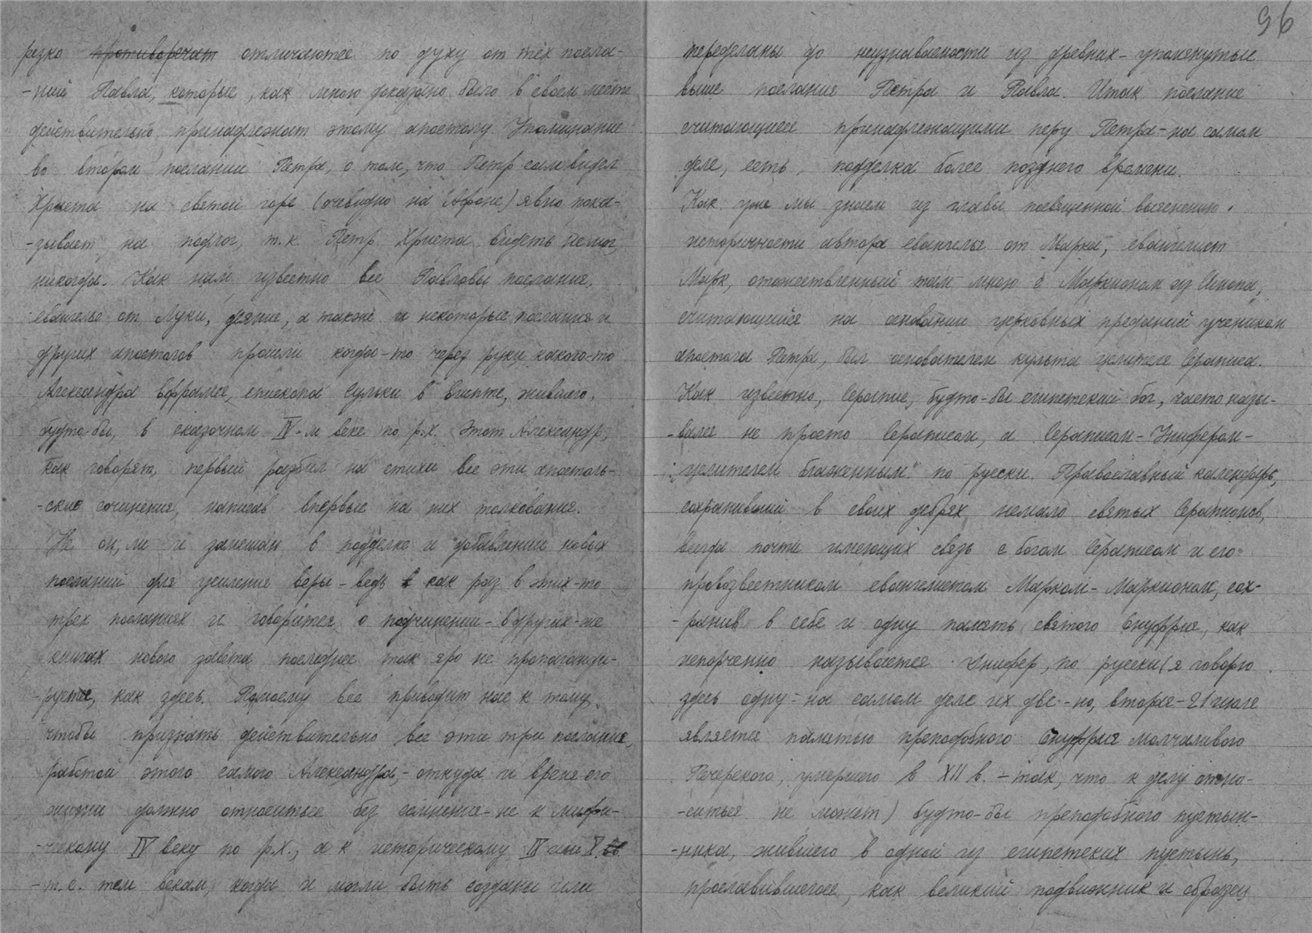 96
резко противоречат отличаются по духу от тех посла-
-ний Павла, которые, как мною доказано было в своем месте
действительно принадлежат этому апостолу. Упоминание
во втором послании Петра, о том, что Петр сам видел
Христа на святой горе (очевидно на Афоне) явно пока-
-зывает на подлог, т.к. Петр Христа видеть не мог
никогда. Как нам известно все Павловы послания,
евангелье от Луки, деяние, а также и некоторые послания и
других апостолов прошли когда-то через руки какого-то
Александра епископа Сульки в Египте, жившего,
будто бы, в сказочном IV-м веке по р.х. Этот Александр,
как говорят, первый разбил на стихи все эти апостоль-
-ские сочинения, написав впервые на них толкования.
Не он ли и замешан в подделке и добавлении новых
посланий для усиления веры - ведь как раз в этих-то
трех посланиях и говорится о подчинении - в других-же
книгах нового завета последнее так яро не пропаганди-
-руется, как здесь. Поэтому все приводит нас к тому,
чтобы признать действительно все эти три послания,
работой этого самого Александра, - откуда и время его
жизни должно относиться без сомнения - не к мифи-
-ческому IV веку по р.х., а к историческому IX или X
- т.е. тем векам, когда и могли быть созданы или
переделаны до неузнаваемости из древних - упомянутые
выше послания Петра и Павла. Итак послание
считающиеся принадлежащими перу Петра - на самом
деле, есть, подделка более позднего времени.
Как уже мы знаем из главы посвященной выяснению
историчности автора евангелья от Марка, евангелист
Марк, отожествленный там мною с Маркионом из Синопа,
считающийся на основании церковных преданий учеником
апостола Петра, был основателем культа целителя Сераписа.
Как известно, Серапис, будто-бы египетский бог, часто назы-
-вался не просто Сераписом, а Сераписом-Унифером-
-"целителем блаженным" по русски. Православный календарь,
сохранивший в своих дебрях немало святых Серапионов,
всегда почти имеющих связь с богом Сераписом и его
провозвестником евангелистом Марком-Маркионом, сох-
-ранив в себе и одну память святого Онуфрия, как
испорченно называется Унифер, по русски (я говорю
здесь одну - на самом деле их две - но, вторая - 21 июля
является памятью преподобного Онуфрия молчаливого
Печерского, умершего в XII в. - так, что к делу отно-
-ситься не может) будто-бы преподобного пустын-
-ника, жившего в одной из египетских пустынь,
прославившегося, как великий подвижник и образец